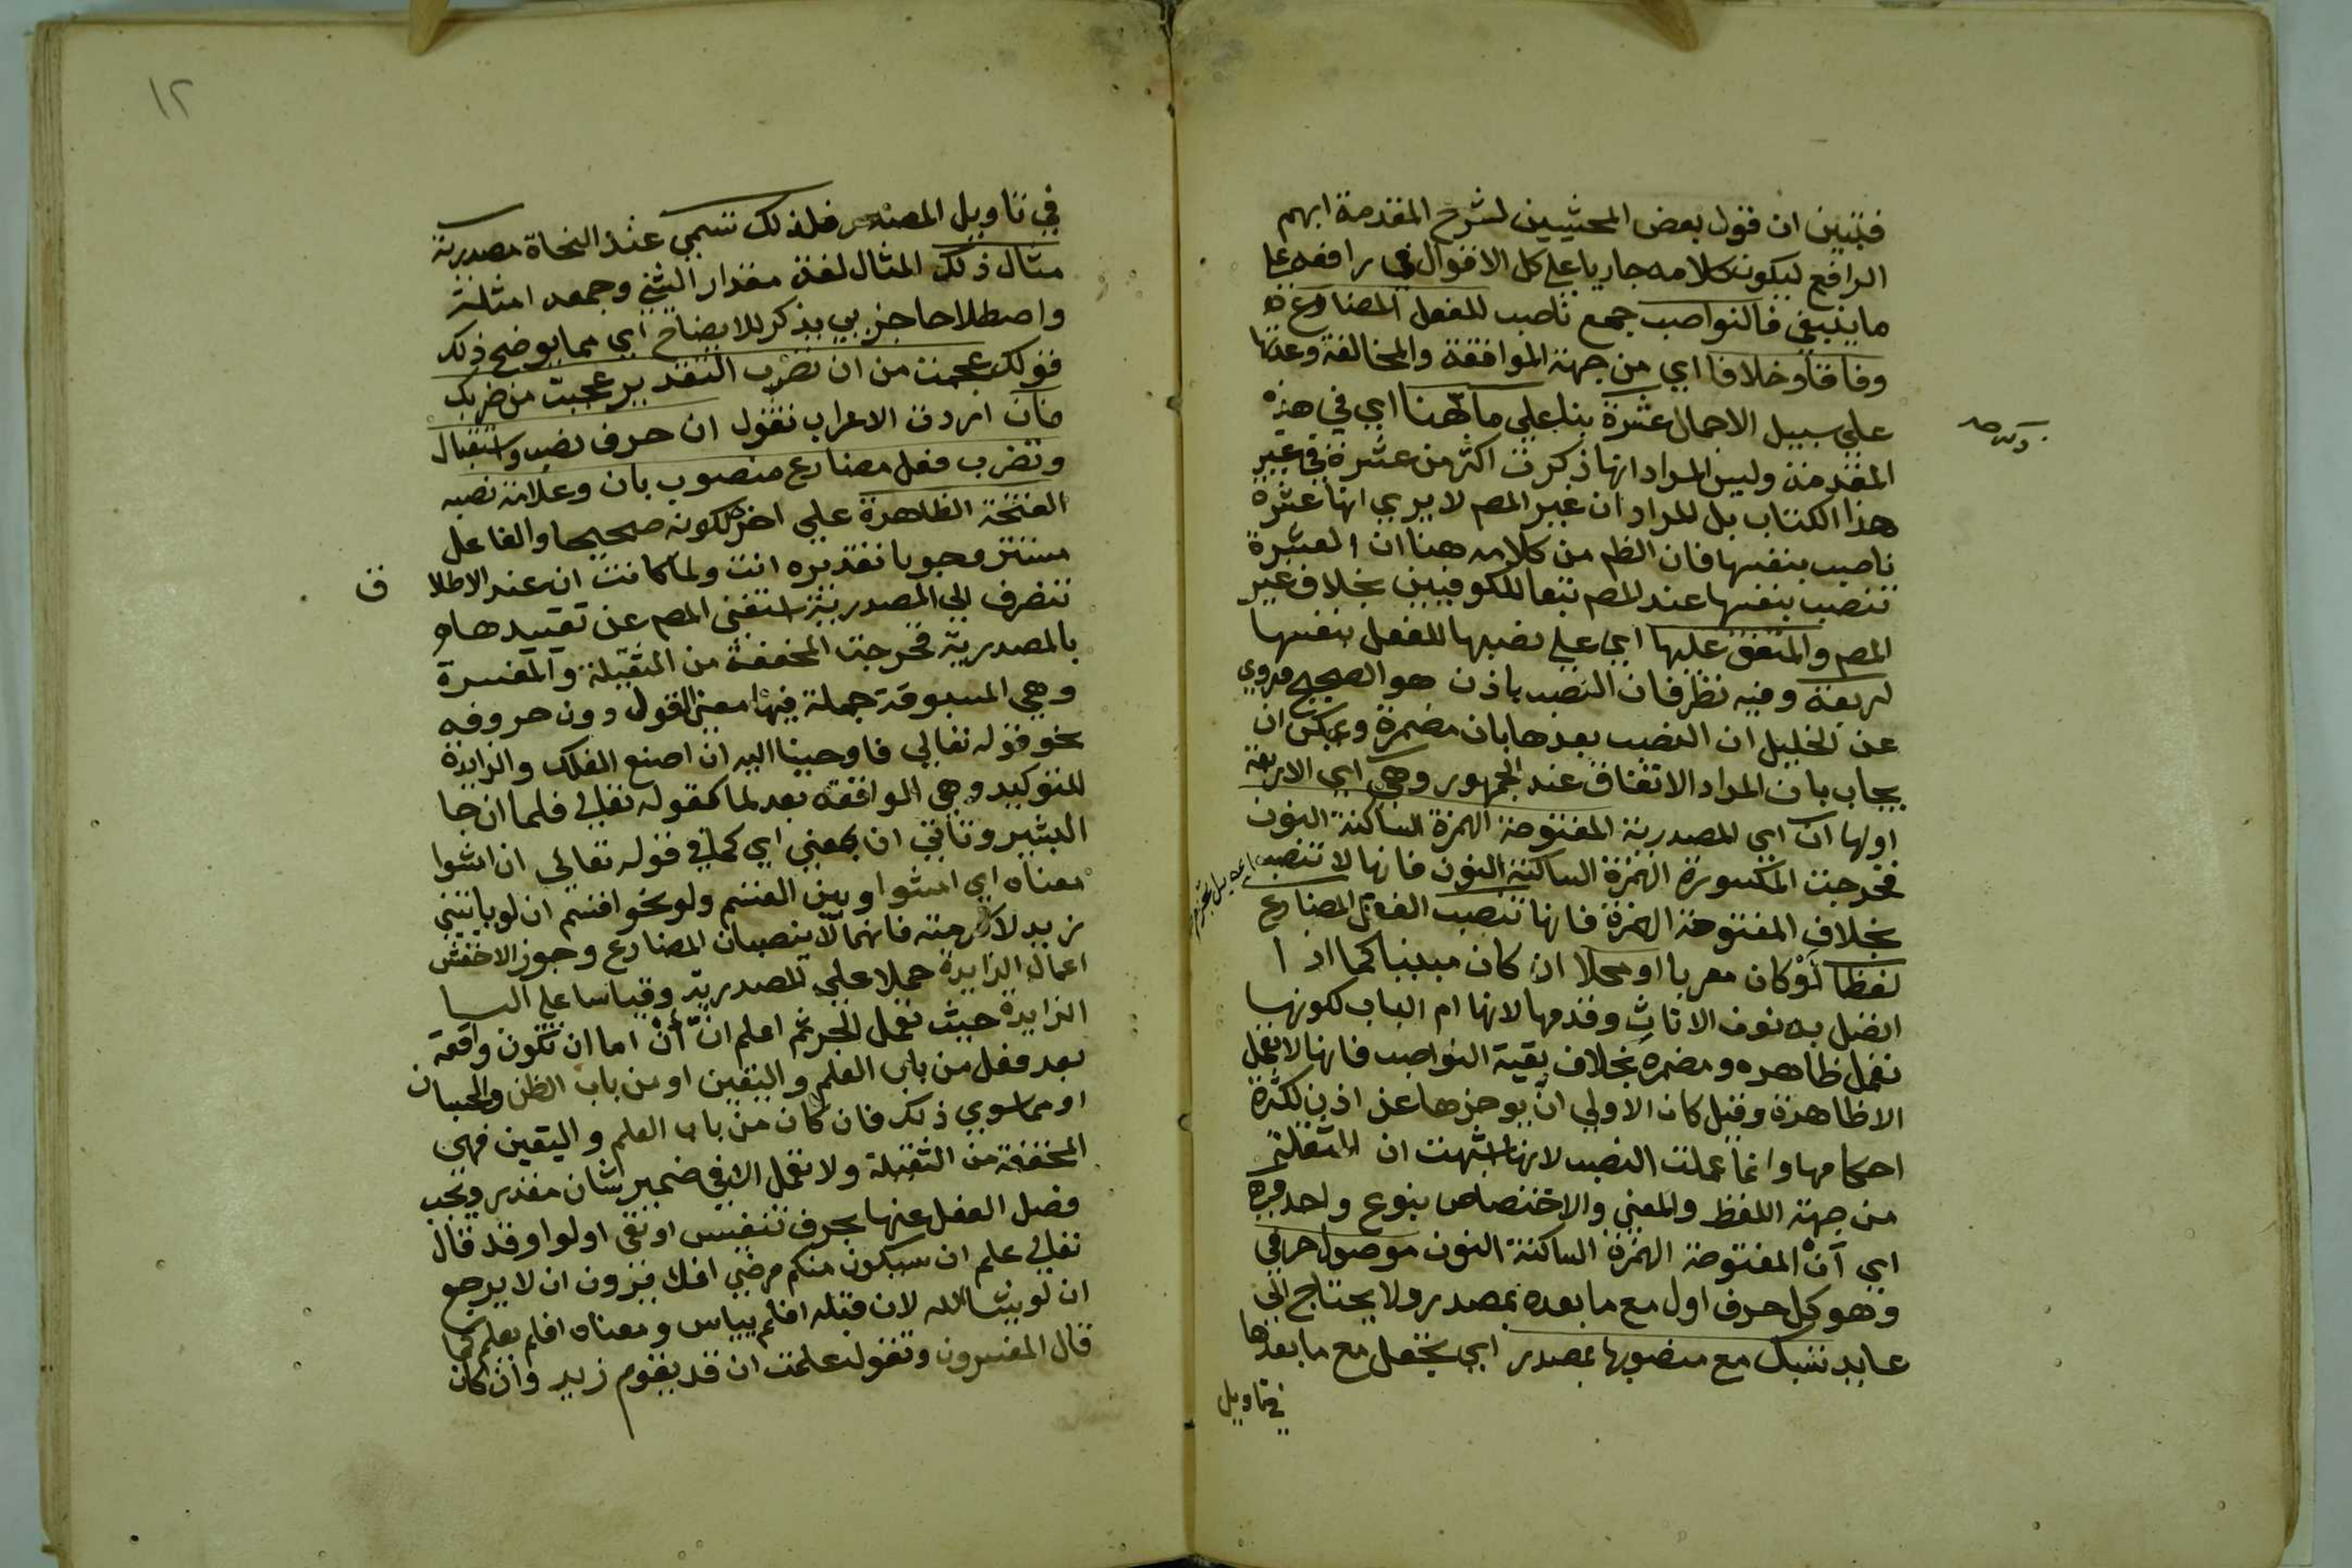 فتبين ان قول بعض المحشيين لشرح المقدمة ابهم
الرافع ليكون كلامه جاريا علي كل الاقوال في رافعه علي
ما ينبغي فالنواصب جمع ناصب للفعل المضارع
وفاقا وخلافا اي من جهة الموافقة والمخالفة وعدتها
علي سبيل الاجمال عشرة بنا علي ما هنا اي في هذه
المقدمة وليس المراد انها ذكرت اكثر من عشرة في غير
هذا الكتاب بل المراد ان غير المص لا يري انها عشرة
ناصب بنفسها فان الظم من كلامه هنا ان العشرة
تنصب بنفسها عند المص تبعا للكوفيين بخلاف غير
المص والمتفق عليها اي علي نصبها للفعل بنفسها
اربعة وفيه نظر فان النصب باذن هو الصحيح وروي
عن الخليل ان النصب بعدها بان مضمرة ويمكن ان
يجاب بان المراد الاتفاق عند الجمهور وهي اي الاربعة
اولها ان اي المصدرية المفتوحة الهمزة الساكنة النون
فخرجت المكسورة الهمزة الساكنة النون فانها لا تنصب
بخلاف المفتوحة الهمزة فانها تنصب الفعل المضارع
لفظا لو كان معربا او محلا ان كان مبنيا كما اذا
اتصل به نون الاناث وقدمها لانها ام الباب لكونها
تعمل ظاهره ومضمره بخلاف بقية النواصب فانها لا تعمل
الا ظاهرة وقيل كان الاولي ان يوخرها عن اذن لكثرة
احكامها وانما عملت النصب لانها اشبهت ان المثقلة
من جهة اللفظ والمعني والاختصاص بنوع واحد
اي ان المفتوحة الهمزة الساكنة النون موصول حرفي
وهو كل حرف اول مع ما بعده بمصدر ولا يحتاج الي
عايد تسبك مع منصوبها بمصدر اي يجعل مع ما بعدها
في تاويل
١٢
في تاويل المصدر فلذلك تسمي عند النحاة مصدرية
مثال ذلك المثال لغة مقدار الشي وجمعه امثلة
واصطلاحا جزيي يذكر للايضاح اي مما يوضح ذلك
قولك عجبت من ان تضرب التقدير عجبت من ضربك
فان اردت الاعراب تقول ان حرف نصب واستقبال
وتضرب فعل مضارع منصوب بان وعلامة نصبه
الفتحة الظاهرة علي اخره لكونه صحيحا والفاعل
مستتر وجوبا تقديره انت ولما كانت ان عند الاطلا ق
تنصرف الي المصدرية استغني المص عن تقييدها
بالمصدرية فخرجت المخففة من الثقيلة والمفسرة
وهي المسبوقة جملة فيها معني القول دون حروفه
نحو قوله تعالي فاوحينا اليه ان اصنع الفلك والزايدة
للتوكيد وهي الواقعة بعد لما كقوله تعالي فلما ان جا
البشير وتاتي ان بمعني اي كما في قوله تعالي ان امشوا
معناه اي امشوا وبين القسم ولو نحو اقسم ان لو ياتيني
زيد لاكرمته فانهما لا ينصبان المضارع وجوز الاخفش
اعمال الزايدة حملا علي المصدرية وقياسا علي البا
الزايدة حيث تعمل الجر ثم اعلم ان أن اما ان تكون واقعة
بعد فعل من باب العلم واليقين او من باب الظن والحسبان
او مما سوي ذلك فان كان من باب العلم واليقين فهي
المخففة من الثقيلة ولا تعمل الا في ضمير شان مقدر ويجب
فصل الفعل عنها بحرف تنفيس او نفي او لو او قد قال
تعالي علم ان سيكون منكم مرضي افلا يرون ان لا يرجع
ان لو يشا الله لان قبله افلم يياس ومعناه افلم يعلم كما
قال المفسرون وتقول علمت ان قد يقوم زيد وان كان